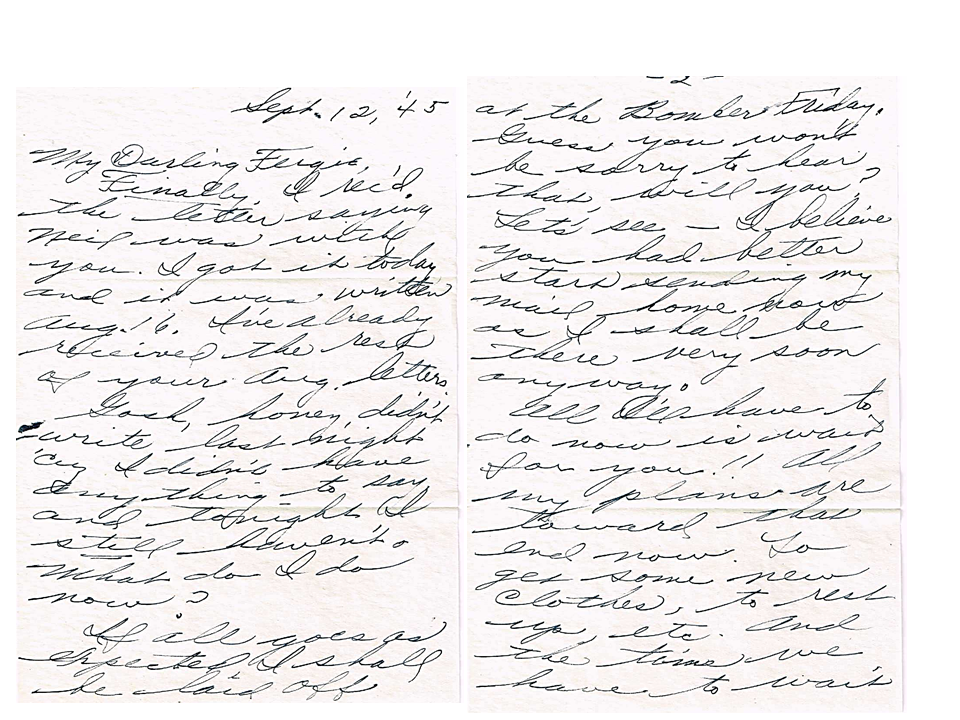 Sept. 12, '45
My Darling Fergie,
Finally, I rec'd.
the letter saying
Neil was with
you. I got it today
and it was written
Aug. 16. I've already
received the rest
of your Aug. letters.
Gosh, honey, didn't
write last night
'cuz I didn't have
anything to say
and tonight I
still haven't.
What do I do
now?
If all goes as
expected I shall
be laid off
-2-
at the Bomber Friday.
Guess you won't
be sorry to hear
that, will you?
Let's see — I believe
you had better
start sending my
mail home now
as I shall be
there very soon
anyway.
All I'll have to
do now is wait
for you!! All
my plans are
toward that
end now. To
get some new
clothes, to rest
up, etc. And
the time we
have to wait